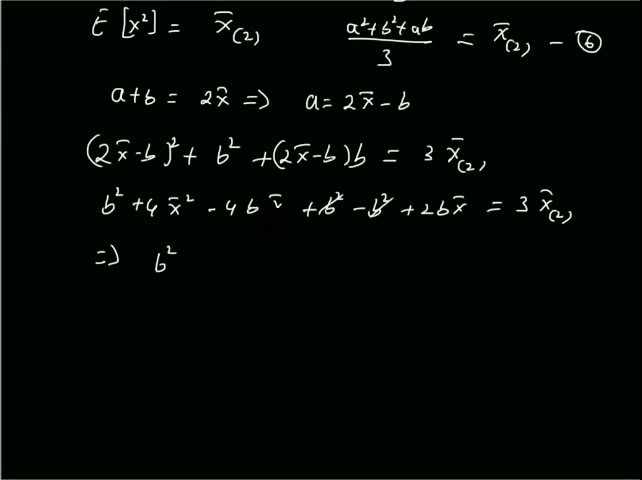 E [x²] = x̄₍₂₎   (a²+b²+ab)/3 = x̄₍₂₎ — ⑥
a+b = 2x̄ => a = 2x̄ - b
(2x̄-b)² + b² + (2x̄-b)b = 3 x̄₍₂₎
b² + 4x̄² - 4b x̄ + b² - b² + 2bx̄ = 3 x̄₍₂₎
=> b²